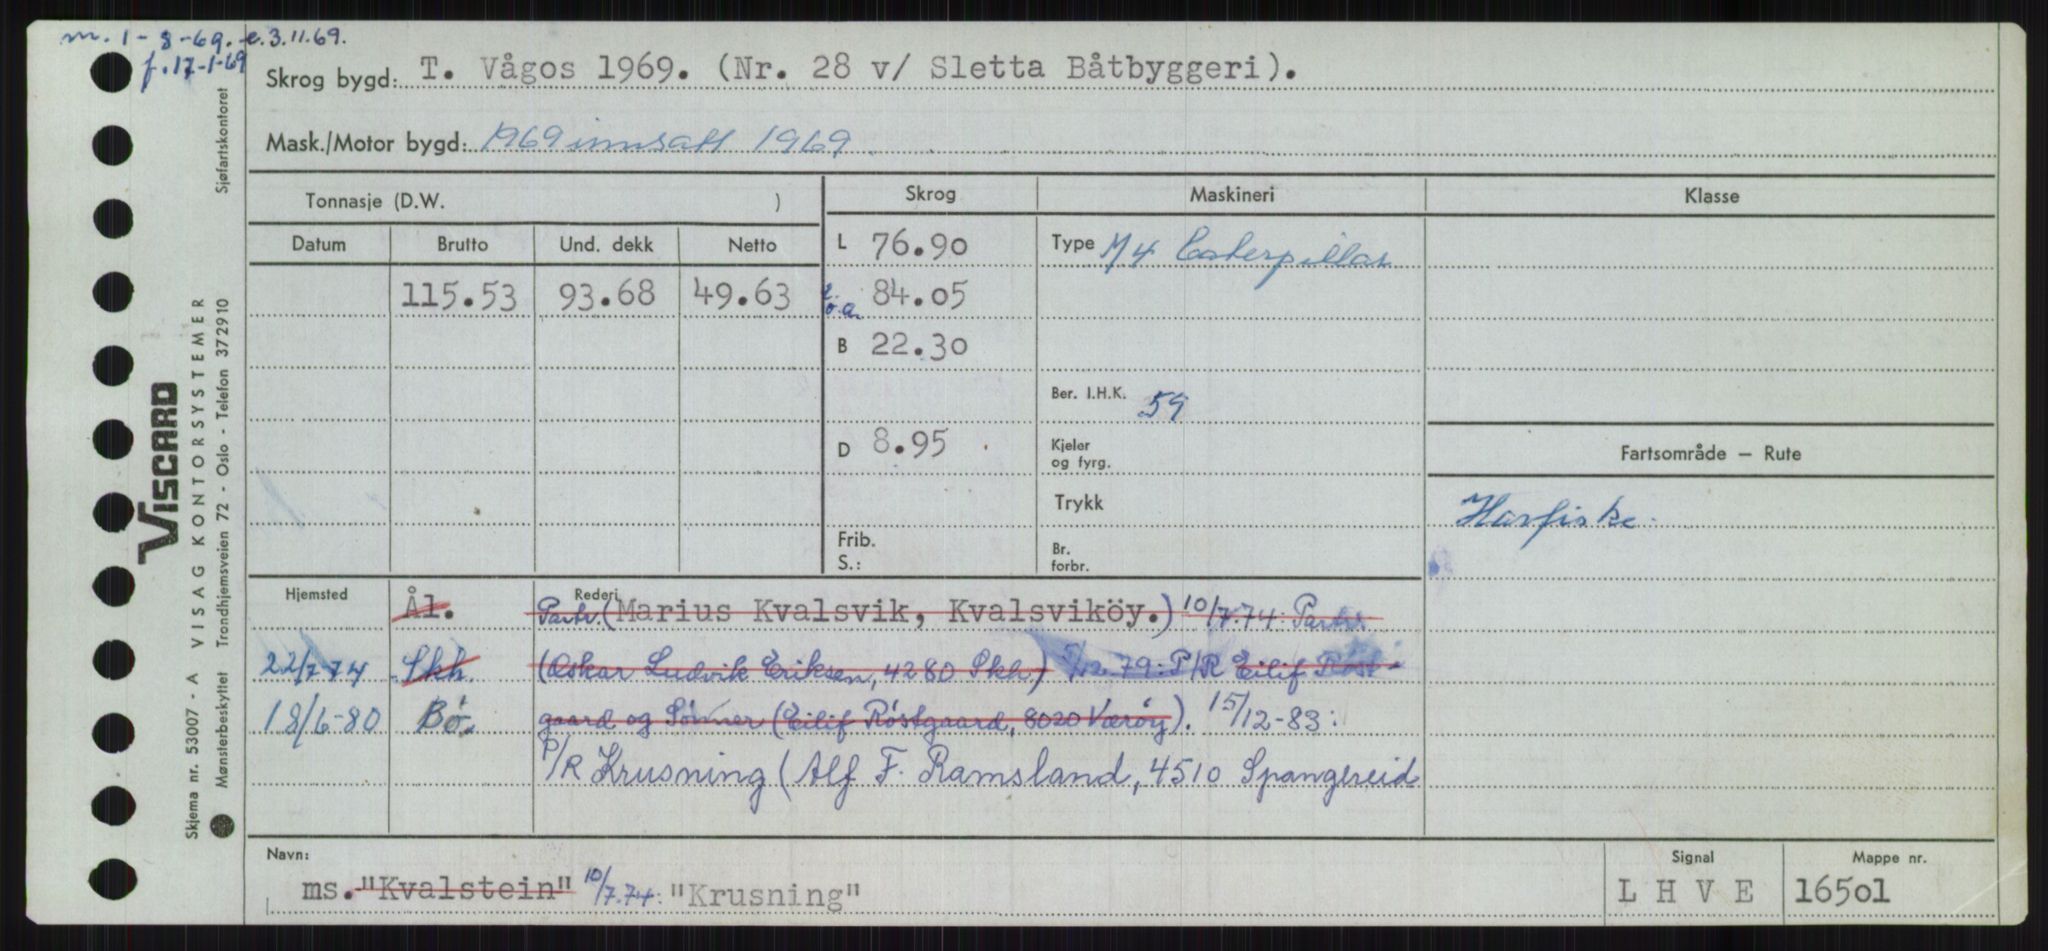 m. 1-8-69. e.3.11.69.
f.17-1-69
Skrog bygd: T. Vågos 1969. (Nr. 28 v/ Sletta Båtbyggeri).
Mask./Motor bygd: 1969 innsatt 1969.
Tonnasje (D.W. )
Skrog Maskineri Klasse
Datum Brutto Und. dekk Netto
L 76.90
Type M4 Caterpillar
115.53 93.68 49.63
L.o.a. 84.05
B 22.30
Ber. I.H.K. 59
D 8.95
Kjeler
og fyrg.
Fartsområde – Rute
Trykk
Havfiske.
Frib.
S.:
Br.
forbr.
Hjemsted Rederi
Ål. Partr. (Marius Kvalsvik, Kvalsviköy.) 10/7.74: Partr.
22/7-74 Skh. (Oskar Ludvik Eriksen, 4280 Skh.) /12.79: P/R Eilif Röst-
18/6-80 Bö. gaard og Sönner (Eilif Röstgaard, 8020 Værøy). 15/12-83:
P/R Krusning (Alf F. Ramsland, 4510 Spangereid
Navn:
Signal
Mappe nr.
ms. "Kvalstein" 10/7.74: "Krusning"
L H V E
16501
Skjema nr. 53007 - A VISAG KONTORSYSTEMER
VISCARD
Mønsterbeskyttet Trondhjemsveien 72 - Oslo - Telefon 372910 Sjøfartskontoret